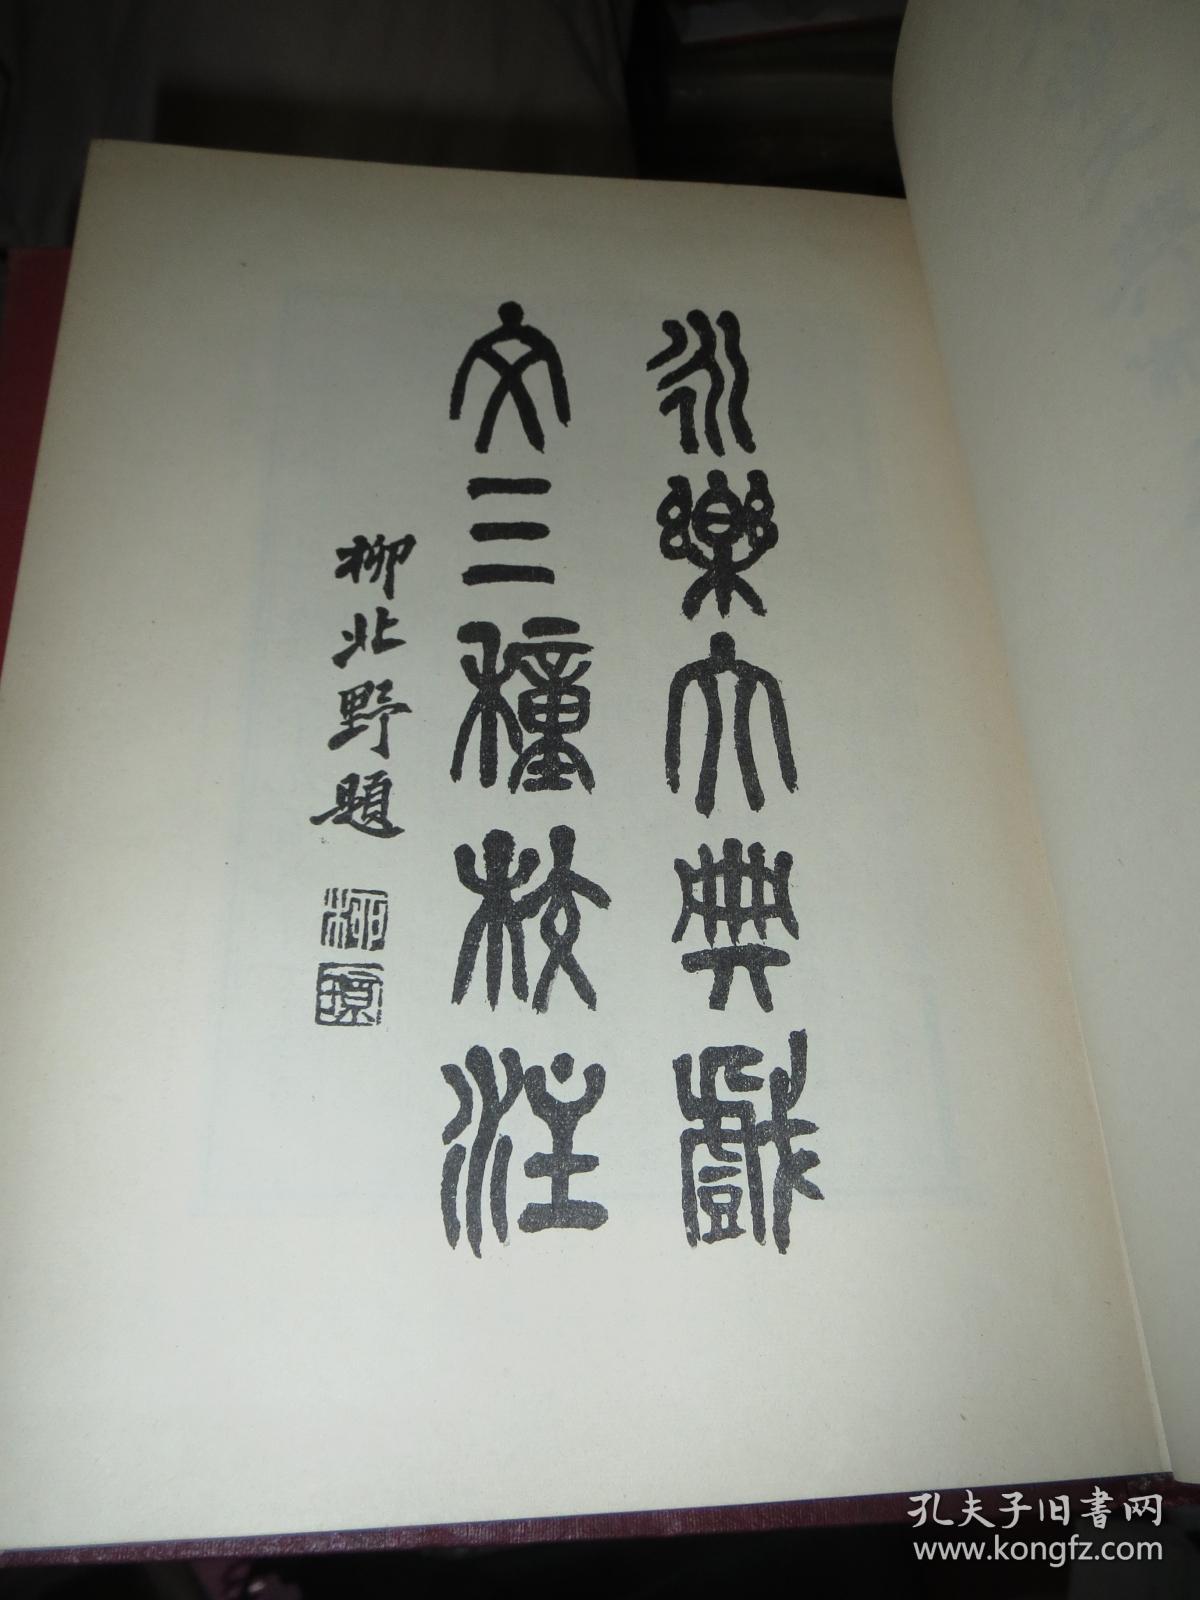 永樂大典戲
文三種校注
柳北野題
孔夫子旧書网
www.kongfz.com